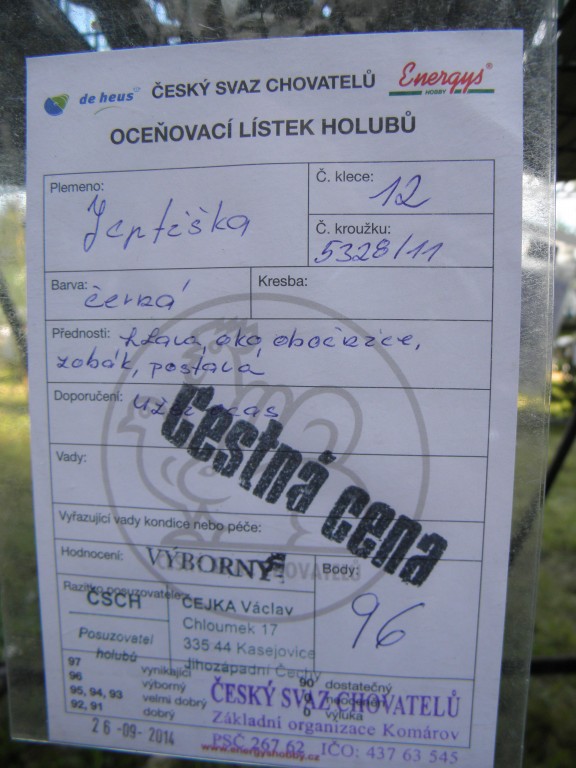 de heus
ČESKÝ SVAZ CHOVATELŮ
Energys
HOBBY
OCEŇOVACÍ LÍSTEK HOLUBŮ
Plemeno:
Jeptiška
Č. klece: 12
Č. kroužku:
5328/11
Barva: černá
Kresba:
Přednosti: hlava, oko, obočnice,
zobák, postava
Doporučení: užší ocas
Čestná cena
Vady:
Vyřazující vady kondice nebo péče:
Hodnocení: VÝBORNÝ
Body: 96
Razítko posuzovatele:
ČSCH
Posuzovatel
holubů
ČEJKA Václav
Chloumek 17
335 44 Kasejovice
Jihozápadní Čechy
97 vynikající
96 výborný
95, 94, 93 velmi dobrý
92, 91 dobrý
90 dostatečný
0 neoceněn
0 výluka
ČESKÝ SVAZ CHOVATELŮ
Základní organizace Komárov
PSČ 267 62 IČO: 437 63 545
26 -09- 2014
www.energyshobby.cz